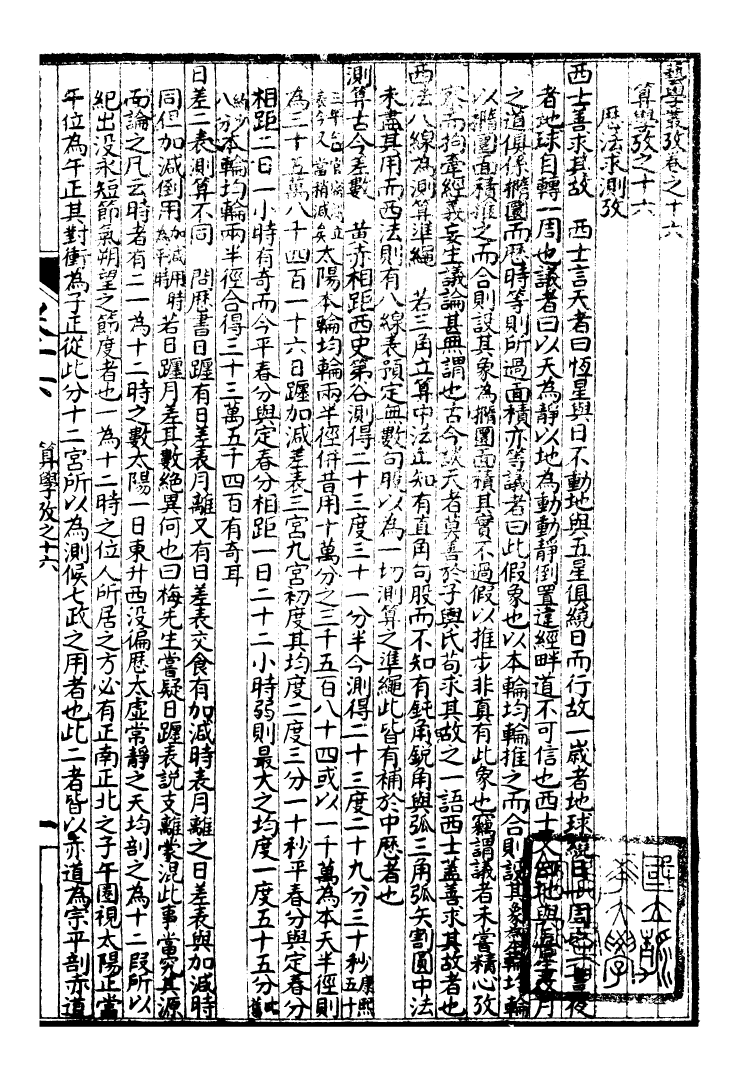 藝學叢攷卷之十六
算學攷之十六
曆法求測攷
西士善求其故　西士言天者曰恆星與日不動地與五星俱繞日而行故一歲者地球繞日一周也一晝夜
者地球自轉一周也議者曰以天為靜以地為動動靜倒置違經畔道不可信也西士又曰地與五星及月
之道俱係橢圜而歷時等則所過面積亦等議者曰此假象也以本輪均輪推之而合則設其象為本輪均輪
以橢圜面積推之而合則設其象為橢圜面積其實不過假以推步非真有此象也竊謂議者未嘗精心攷
察而拘牽經義妄生議論甚無謂也古今談天者莫善於子輿氏苟求其故之一語西士蓋善求其故者也
西法八線為測算準繩　若三角立算中法止知有直角句股而不知有鈍角銳角與弧三角弧矢割圜中法
未盡其用而西法則有八線表預定無數句股以為一切測算之準繩此皆有補於中歷者也
測算古今差數　黃赤相距西史第谷測得二十三度三十一分半今測得二十三度二十九分三十秒康熙五十
三年 當稍減矣太陽本輪均輪兩半徑併昔用十萬分之三千五百八十四或以一千萬為本天半徑則
為三十五萬八千四百一十六日躔加減差表三宮九宮初度其均度二度三分一十秒平春分與定春分
相距二日一小時有奇而今平春分與定春分相距一日二十二小時弱則最大之均度一度五十五分
八分本輪均輪兩半徑合得三十三萬五千四百有奇耳
日差二表測算不同　問歷書日躔有日差表月離又有日差表交食有加減時表月離之日差表與加減時
同但加減倒用加減用時為平時若日躔月差其數絕異何也曰梅先生嘗疑日躔表說支離蒙混此事當究其源
而論之凡云時者有二一為十二時之數太陽一日東升西沒徧歷太虛常靜之天均剖之為十二段所以
紀出沒永短節氣朔望之節度者也一為十二時之位人所居之方必有正南正北之子午圜視太陽正當
午位為午正其對衝為子正從此分十二宮所以為測候七政之用者也此二者皆以赤道為宗平剖赤道
算學攷之十六